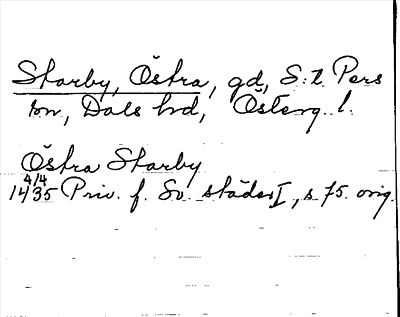 Starby, Östra, gd, S:t Pers
sn, Dals hd, Österg. l.
Östra Starby
14 4/4 35 Priv. f. Sv. städer I, s 75. orig.